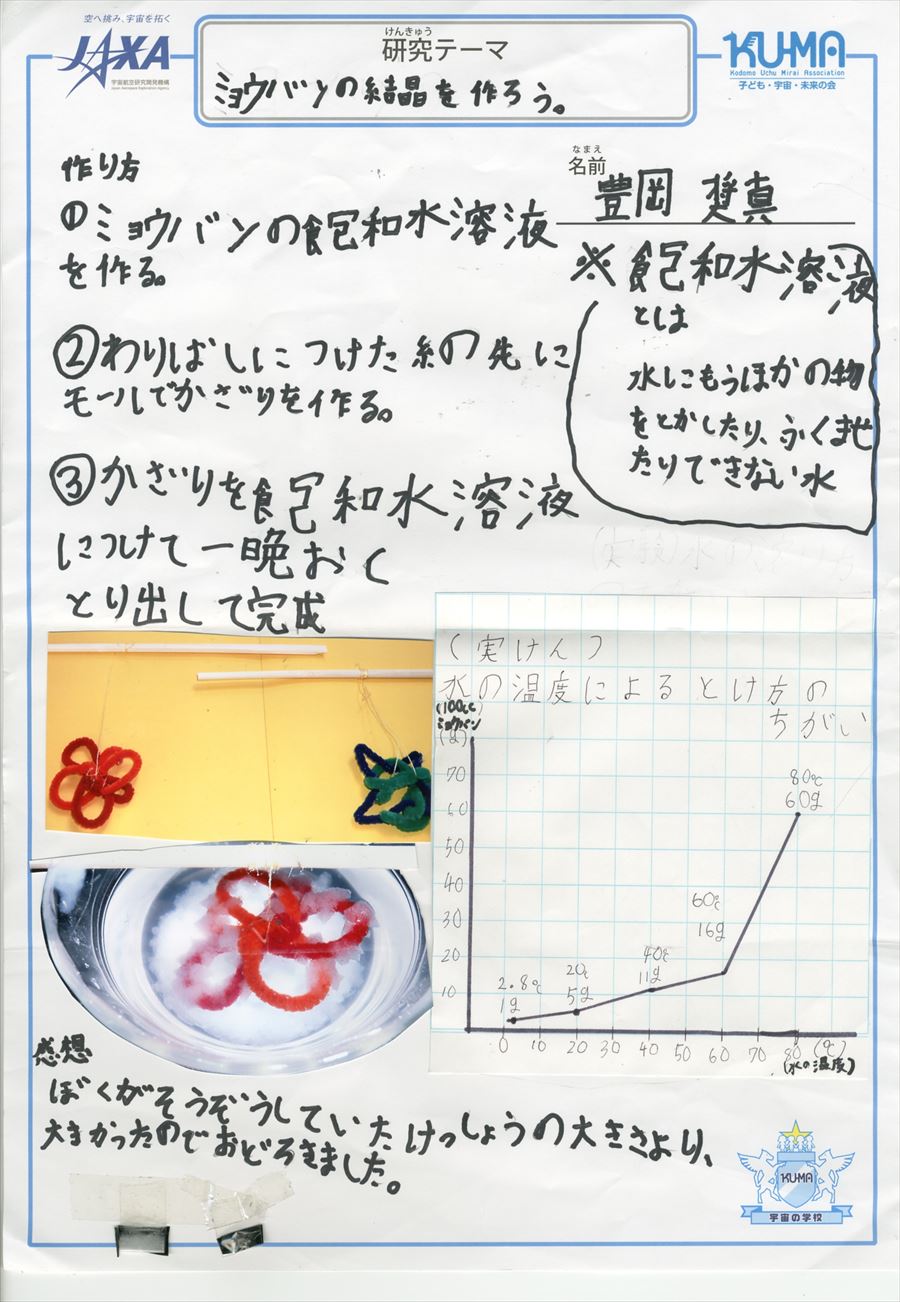 空へ挑み、宇宙を拓く
JAXA
宇宙航空研究開発機構
Japan Aerospace Exploration Agency
けんきゅう
研究テーマ
ミョウバンの結晶を作ろう。
KU-MA
Kodomo Uchu Mirai Association
子ども・宇宙・未来の会
なまえ
名前
豊岡 奨真
作り方
①ミョウバンの飽和水溶液
を作る。
②わりばしにつけた糸の先に
モールでかざりを作る。
③かざりを飽和水溶液
につけて一晩おく
とり出して完成
※飽和水溶液
とは
水にもうほかの物
をとかしたり、ふくませ
たりできない水
(実けん)
水の温度によるとけ方の
ちがい
(100cc)
ミョウバン
(g)
70
60
50
40
30
20
10
2.8℃
1g
20℃
5g
40℃
11g
60℃
16g
80℃
60g
0 10 20 30 40 50 60 70 80 (℃)
(水の温度)
感想
ぼくがそうぞうしていたけっしょうの大きさより、
大きかったのでおどろきました。
KU-MA
宇宙の学校